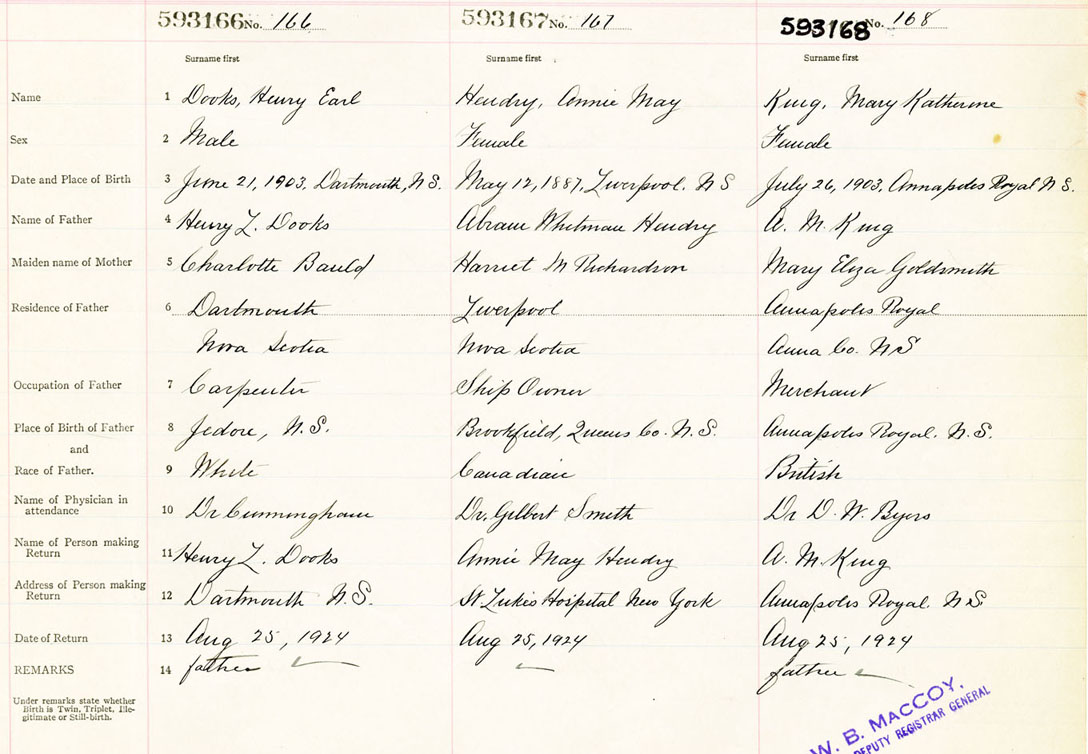 593166 No. 166 593167 No. 167 593168 No. 168
Surname first Surname first Surname first
Name 1 Dooks, Henry Earl Hendry, Annie May King, Mary Katherine
Sex 2 Male Female Female
Date and Place of Birth 3 June 21, 1903, Dartmouth, N.S. May 12, 1887, Liverpool. N S July 26, 1903, Annapolis Royal N S.
Name of Father 4 Henry L. Dooks Abram Whitman Hendry A. M. King
Maiden name of Mother 5 Charlotte Bauld Harriet M Richardson Mary Eliza Goldsmith
Residence of Father 6 Dartmouth Liverpool Annapolis Royal
Nova Scotia Nova Scotia Anna Co. N S
Occupation of Father 7 Carpenter Ship Owner Merchant
Place of Birth of Father 8 Jedore, N.S. Brookfield, Queens Co. N.S. Annapolis Royal. N.S.
and
Race of Father. 9 White Canadian British
Name of Physician in
attendance 10 Dr Cunningham Dr. Gilbert Smith Dr D. W. Byers
Name of Person making
Return 11 Henry L. Dooks Annie May Hendry A. M. King
Address of Person making
Return 12 Dartmouth N.S. St Lukes Hospital New York Annapolis Royal. N S
Date of Return 13 Aug 25, 1924 Aug 25, 1924 Aug 25, 1924
REMARKS 14 father father
Under remarks state whether
Birth is Twin, Triplet, Ille-
gitimate or Still-birth.
W. B. MACCOY,
DEPUTY REGISTRAR GENERAL